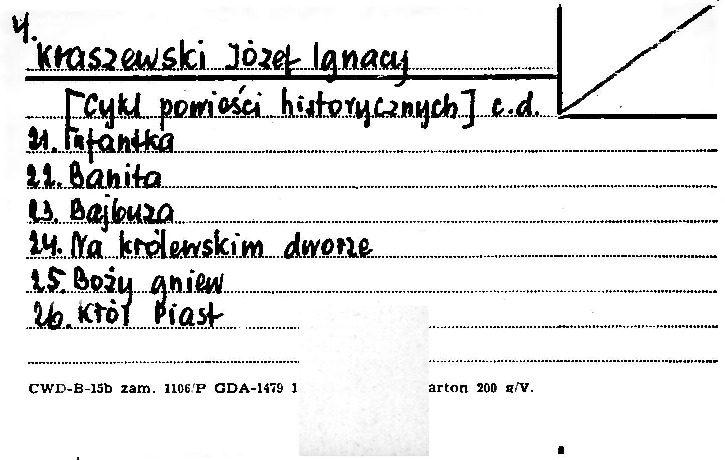 4.
Kraszewski Józef Ignacy
[Cykl powieści historycznych] c.d.
21. Infantka
22. Banita
23. Bajbuza
24. Na królewskim dworze
25. Boży gniew
26. Król Piast
CWD-B-15b zam. 1106/P GDA-1479 1 arton 200 g/V.